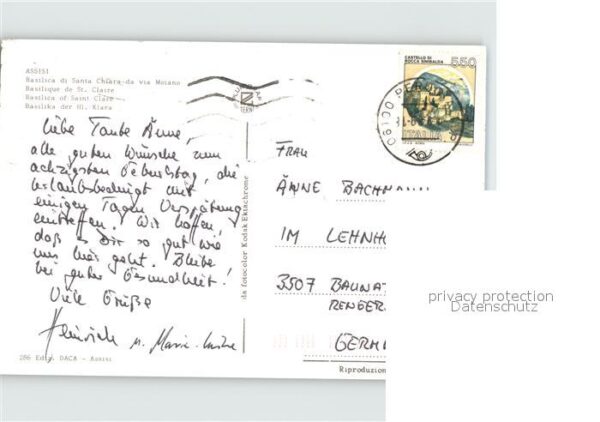 ASSISI
Basilica di Santa Chiara da via Moiano
Basilique de St. Claire
Basilica of Saint Clare
Basilika der Hl. Klara
Liebe Tante Änne,
alle guten Wünsche zum
achzigsten Geburtstag, die
urlaubsbedingt mit
einigen Tagen Verspätung
eintreffen. Wir hoffen,
daß es Dir so gut wie
uns hier geht. Bleibe
bei guter Gesundheit!
Viele Grüße
Heinrich u. Marie-Luise
286 Ediz. DACA - Assisi
da fotocolor Kodak Ektachrome
CASTELLO DI
ROCCA SINIBALDA
550
ITALIA
06100
FRAU
ÄNNE BACHMANN
IM LEHNH
3507 BAUNAT
GERM
Riproduzion
privacy protection
Datenschutz